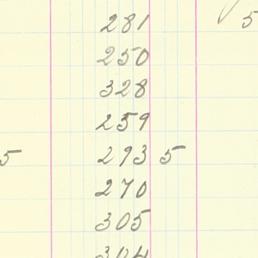 281 5
250
328
259
5 293 5
270
305
304